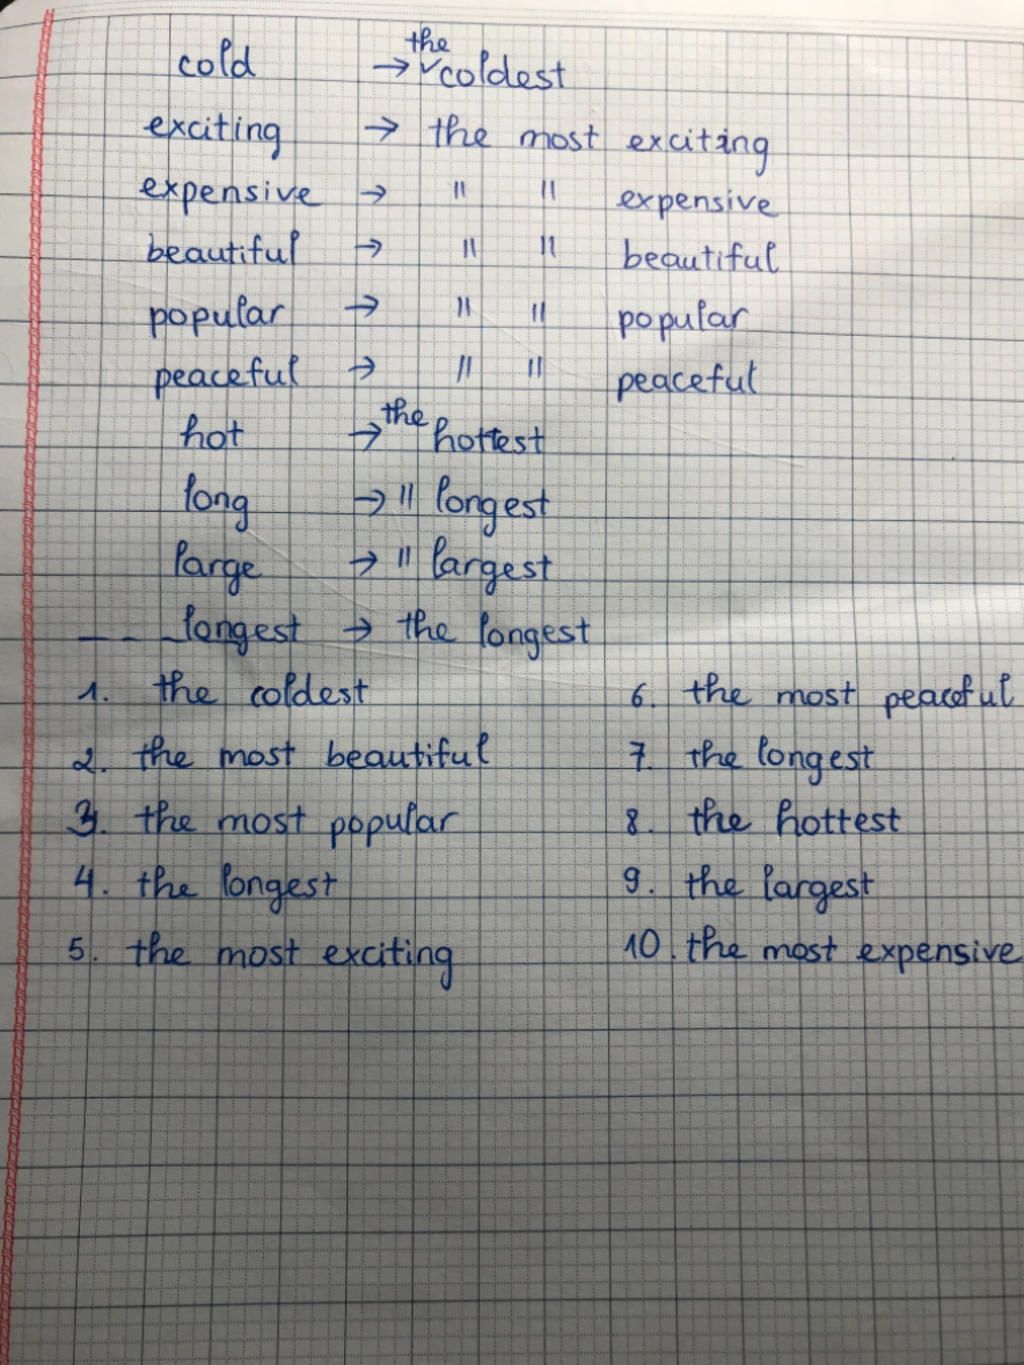 cold → the coldest
exciting → the most exciting
expensive → " " expensive
beautiful → " " beautiful
popular → " " popular
peaceful → " " peaceful
hot → the hottest
long → " longest
large → " largest
_ _ _ longest → the longest
1. the coldest
2. the most beautiful
3. the most popular
4. the longest
5. the most exciting
6. the most peaceful
7. the longest
8. the hottest
9. the largest
10. the most expensive